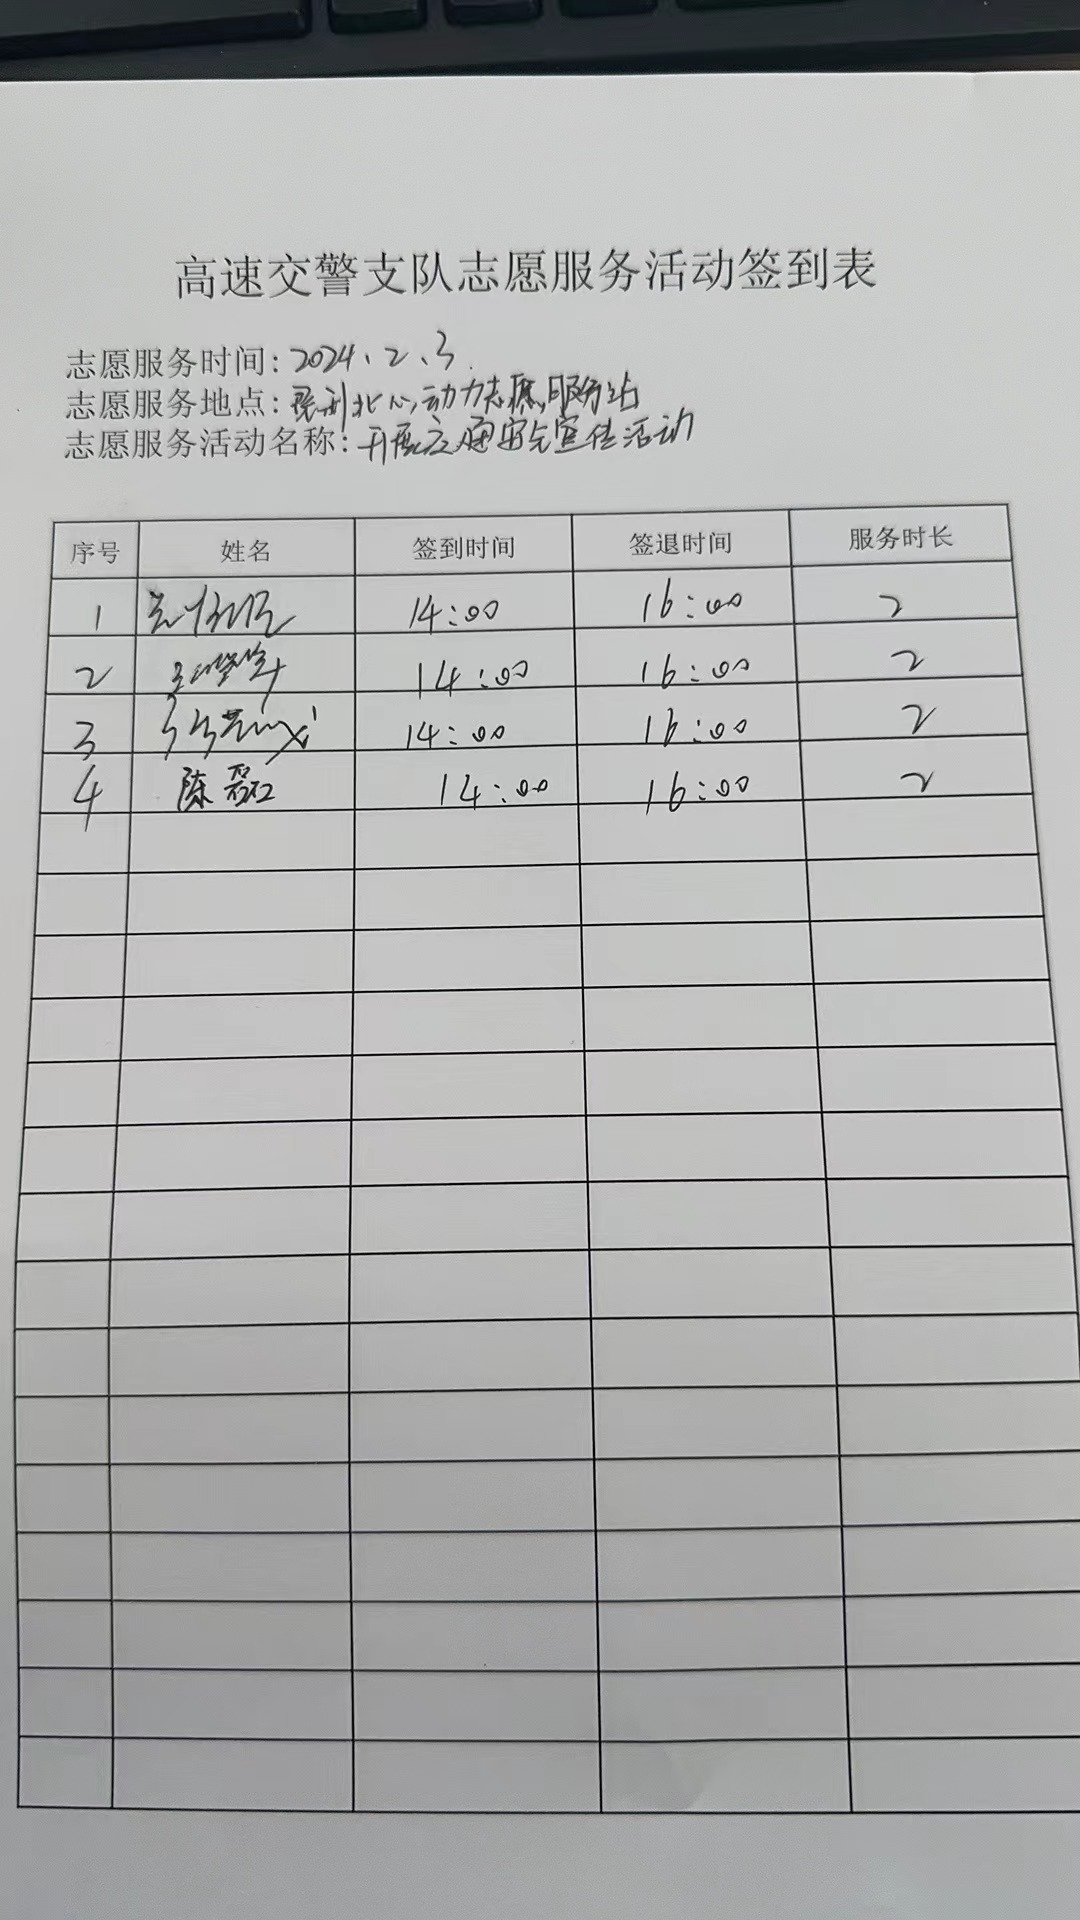 高速交警支队志愿服务活动签到表
志愿服务时间：2024、2、3
志愿服务地点：北心动力志愿服务站
志愿服务活动名称：开展交通安全宣传活动
序号 姓名 签到时间 签退时间 服务时长
1 14:00 16:00 2
2 14:00 16:00 2
3 14:00 16:00 2
4 陈磊 14:00 16:00 2